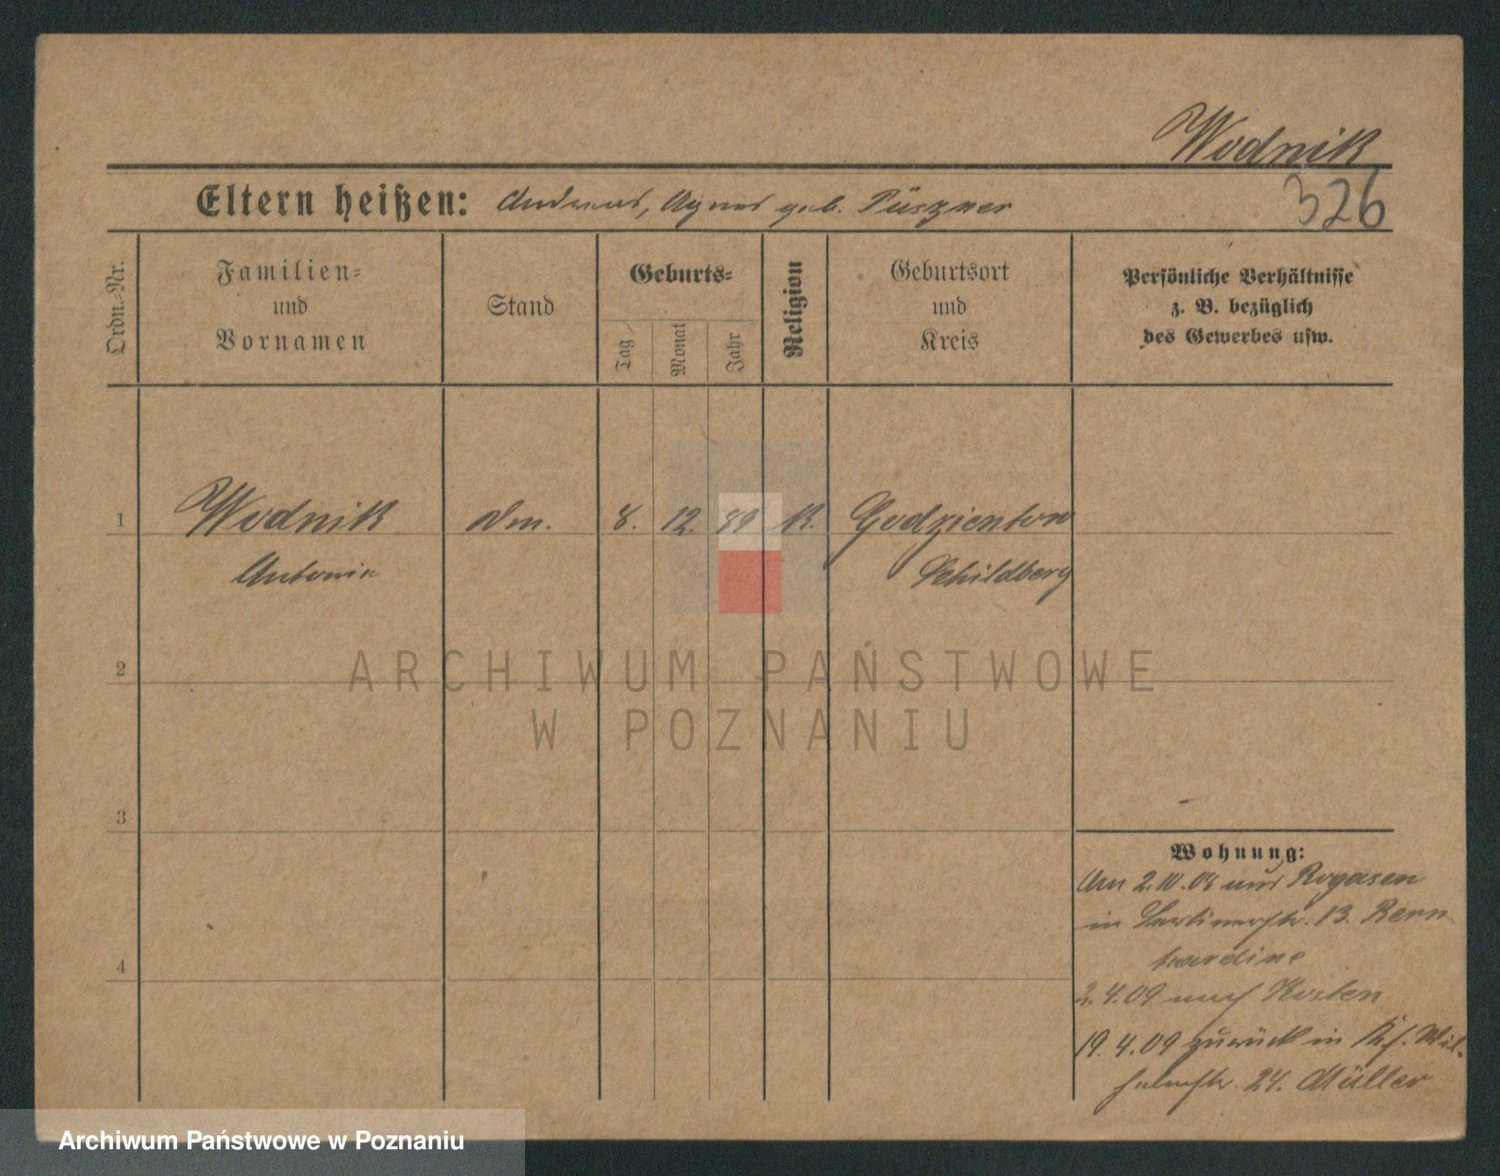 Wodnik
326
Eltern heißen: Andreas, Agnes geb. Püszner
Ordn.-Nr.
Familien- und Vornamen
Stand
Geburts-
Tag
Monat
Jahr
Religion
Geburtsort und Kreis
Persönliche Verhältnisse
z. B. bezüglich
des Gewerbes usw.
1
Wodnik
8. 12. 89
K.
Antonie
Schildberg
ARCHIWUM PAŃSTWOWE
W POZNANIU
2
3
4
Wohnung:
Am 2.10.08 aus Rogasen
in Berlinerstr. 13. Bern-
hardine
2.4.09 nach Kosten
19.4.09 zurück in Wil-
helmstr. 24. Müller
Archiwum Państwowe w Poznaniu